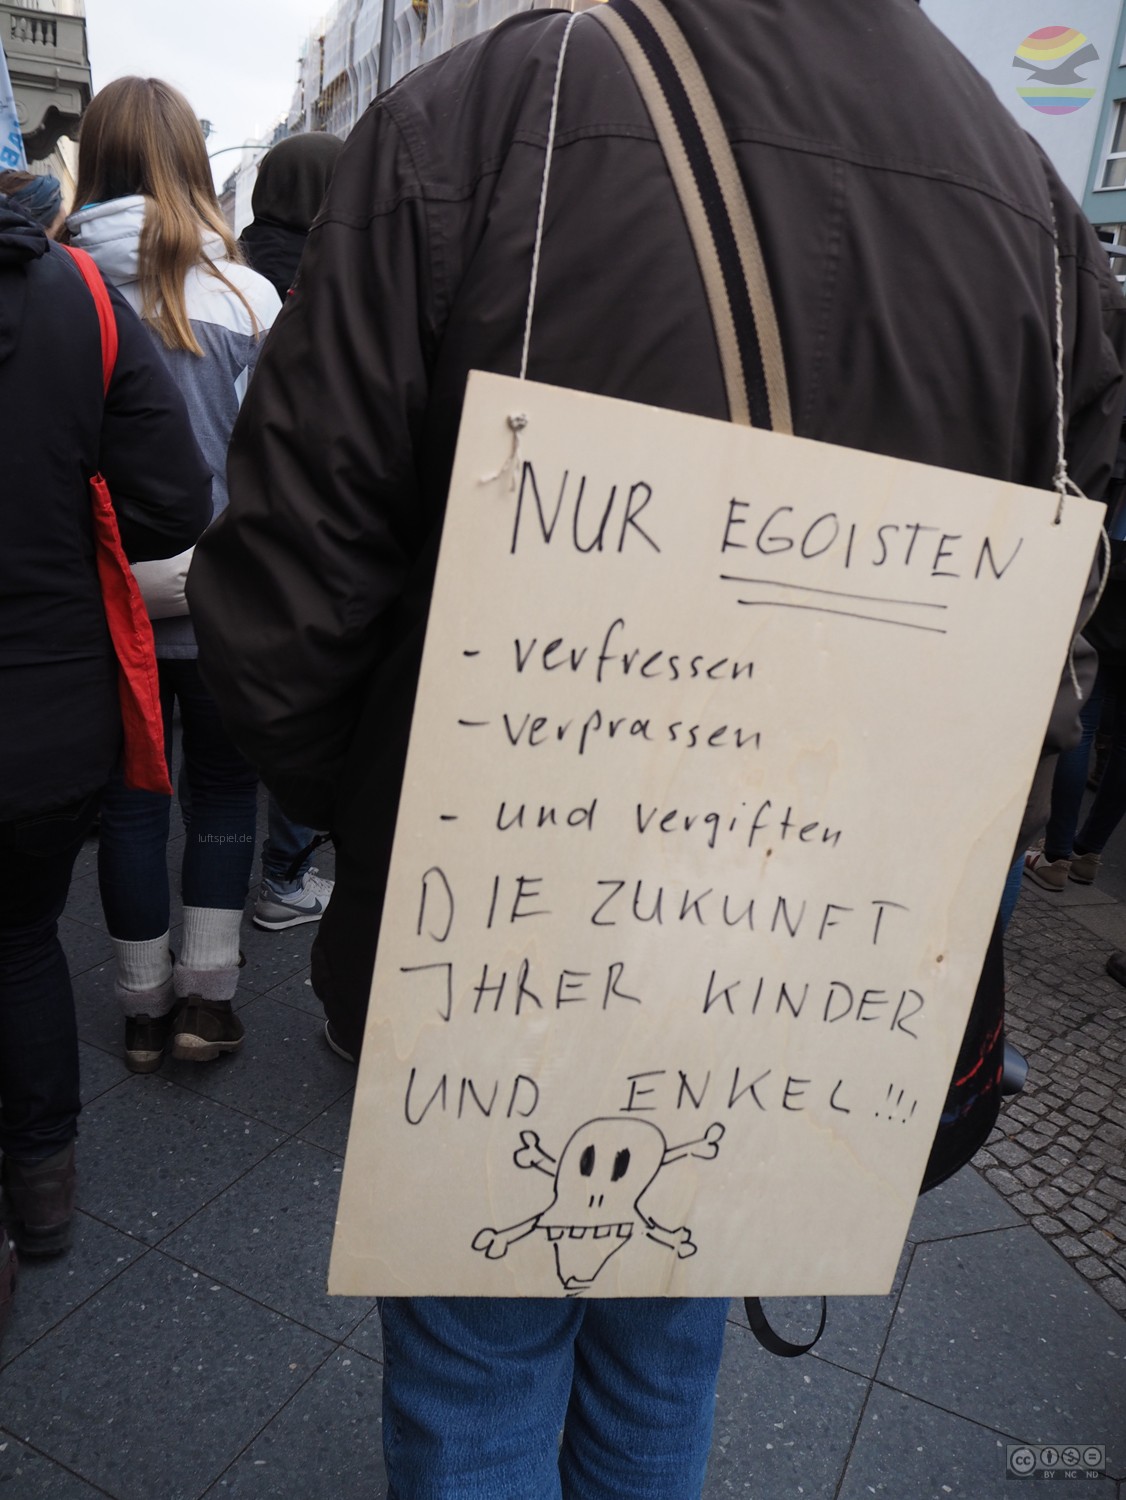 NUR EGOISTEN
- verfressen
- verprassen
- und vergiften
DIE ZUKUNFT
IHRER KINDER
UND ENKEL!!!
luftspiel.de
cc
BY NC ND